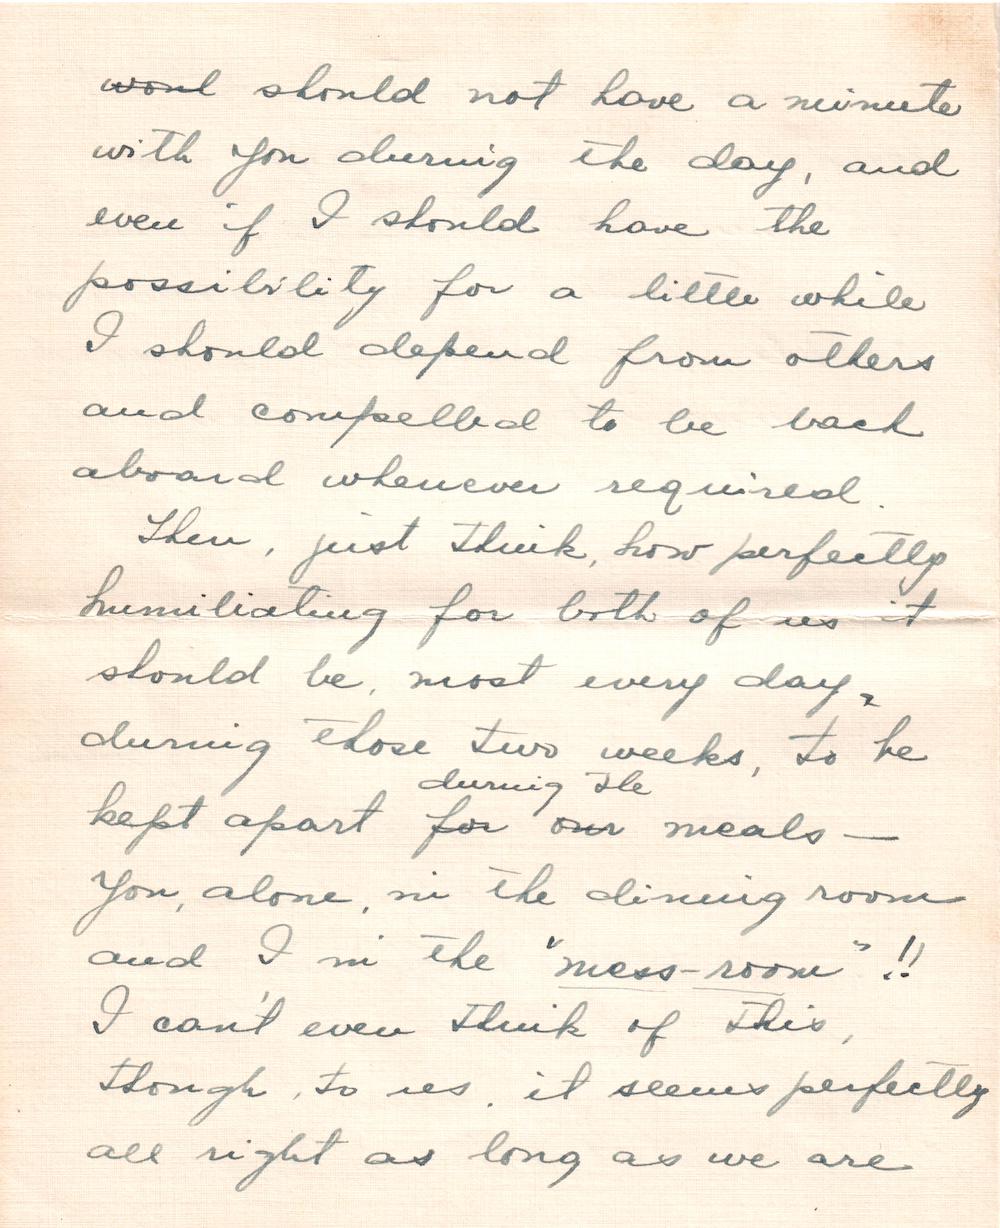 wonl should not have a minute
with you during the day, and
even if I should have the
possibility for a little while
I should depend from others
and compelled to be back
aboard whenever required.
Then, just think, how perfectly
humiliating for both of us it
should be, most every day,
during those two weeks, to be
during the
kept apart for our meals —
You, alone, in the dining room
and I in the "mess-room" !!
I can't even think of this,
though, to us, it seems perfectly
all right as long as we are